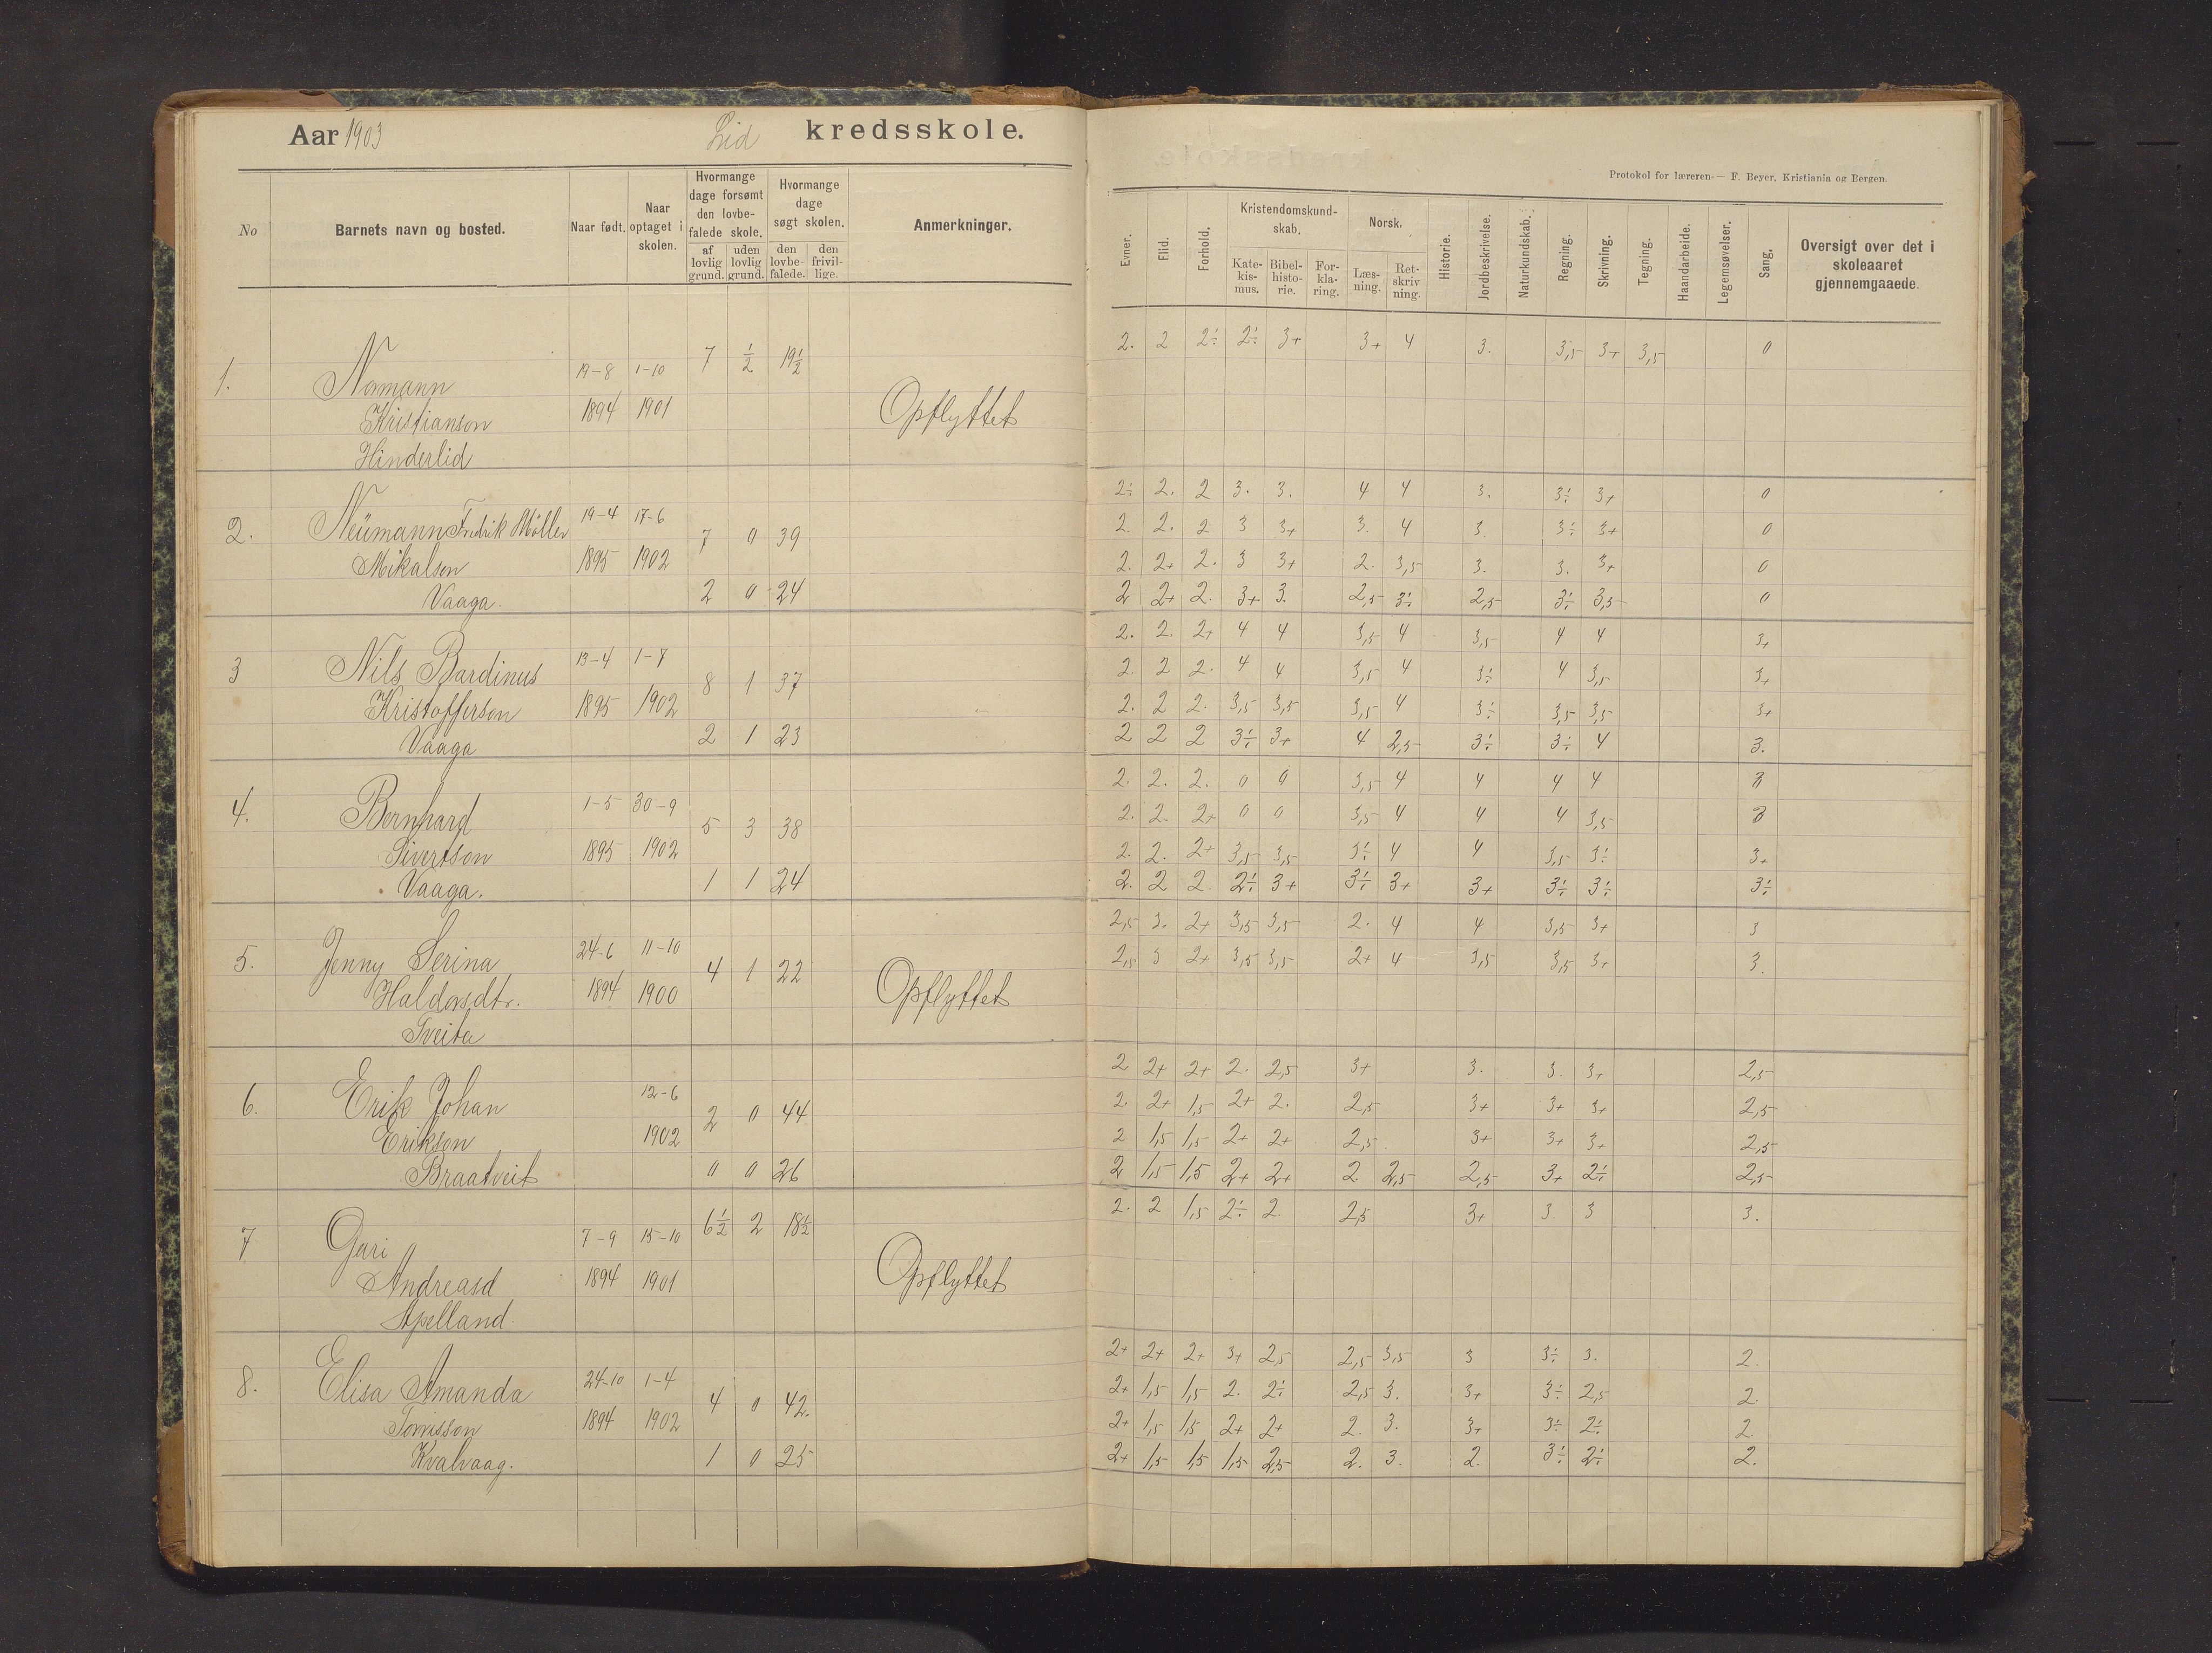 Aar 1903 Lid kredsskole.
No Barnets navn og bosted. Naar født. Naar optaget i skolen. Hvormange dage forsømt den lovbefalede skole. af lovlig grund. uden lovlig grund. Hvormange dage søgt skolen. den lovbefalede. den frivillige. Anmerkninger.
1. Normann 19-8 1-10 7 ½ 19½
Kristianson 1894 1901 Opflyttet
Hinderlid
2. Neümann Fredrik Møller 19-4 17-6 7 0 39
Mikalson 1895 1902
Vaaga. 2 0 24
3 Nils Bardinus 13-4 1-7 8 1 37
Kristofferson 1895 1902
Vaaga 2 1 23
4. Bernhard 1-5 30-9 5 3 38
Sivertson 1895 1902
Vaaga. 1 1 24
5. Jenny Serina 24-6 11-10 4 1 22
Haldorsdtr. 1894 1900 Opflyttet
Tveita
6. Erik Johan 12-6 2 0 44
Erikson 1902
Braatveit 0 0 26
7 Guri 7-9 15-10 6½ 2 18½
Andreasd 1894 1901 Opflyttet
Apelland.
8. Elisa Amanda 24-10 1-4 4 0 42.
Tomasson 1894 1902
Kvalvaag. 1 0 25
Protokol for læreren. — F. Beyer, Kristiania og Bergen.
Evner. Flid. Forhold. Kristendomskundskab. Katekismus. Bibelhistorie. Forklaring. Norsk. Læsning. Retskrivning. Historie. Jordbeskrivelse. Naturkundskab. Regning. Skrivning. Tegning. Haandarbeide. Legemsøvelser. Sang. Oversigt over det i skoleaaret gjennemgaaede.
2. 2 2÷ 2÷ 3+ 3+ 4 3. 3,5 3+ 3,5 0
2÷ 2. 2 3. 3. 4 4 3. 3÷ 3+ 0
2. 2. 2 3 3+ 3. 4 3. 3÷ 3+ 0
2. 2+ 2. 3 3+ 2. 3,5 3. 3. 3+ 0
2 2+ 2. 3+ 3. 2,5 3÷ 2,5 3÷ 3,5 0
2. 2. 2+ 4 4 3,5 4 3,5 4 4 3+
2. 2 2. 4 4 3,5 4 3÷ 4 3,5 3+
2. 2 2. 3,5 3,5 3,5 4 3÷ 3,5 3,5 3+
2 2 2 3÷ 3+ 4 2,5 3÷ 3÷ 4 3.
2. 2. 2. 0 0 3,5 4 4 4 4 3
2. 2. 2+ 0 0 3,5 4 4 4 3,5 3
2. 2. 2+ 3,5 3,5 3÷ 4 4 3,5 3÷ 3+
2. 2 2. 2÷ 3+ 3÷ 3+ 3+ 3÷ 3÷ 3÷
2,5 3. 2+ 3,5 3,5 2. 4 4 3,5 3+ 3
2,5 3 2+ 3,5 3,5 2+ 4 3,5 3,5 3+ 3.
2 2+ 2+ 2. 2,5 3+ 3. 3. 3+ 2,5
2. 2+ 1,5 2+ 2. 2,5 3+ 3+ 3+ 2,5
2 1,5 1,5 2+ 2+ 2,5 3+ 3+ 3+ 2,5
2 1,5 1,5 2+ 2+ 2. 2,5 2,5 3+ 2÷ 2,5
2. 2 1,5 2÷ 2. 2,5 3+ 3. 3 3.
2+ 2+ 2+ 3+ 2,5 2,5 3,5 3 3÷ 3. 2.
2+ 1,5 1,5 2. 2÷ 2,5 3. 3+ 3÷ 2,5 2.
2+ 1,5 1,5 2+ 2+ 2. 3. 3+ 3÷ 2÷ 2.
2+ 1,5 1,5 1,5 2,5 2. 3. 2. 3÷ 2÷ 2.